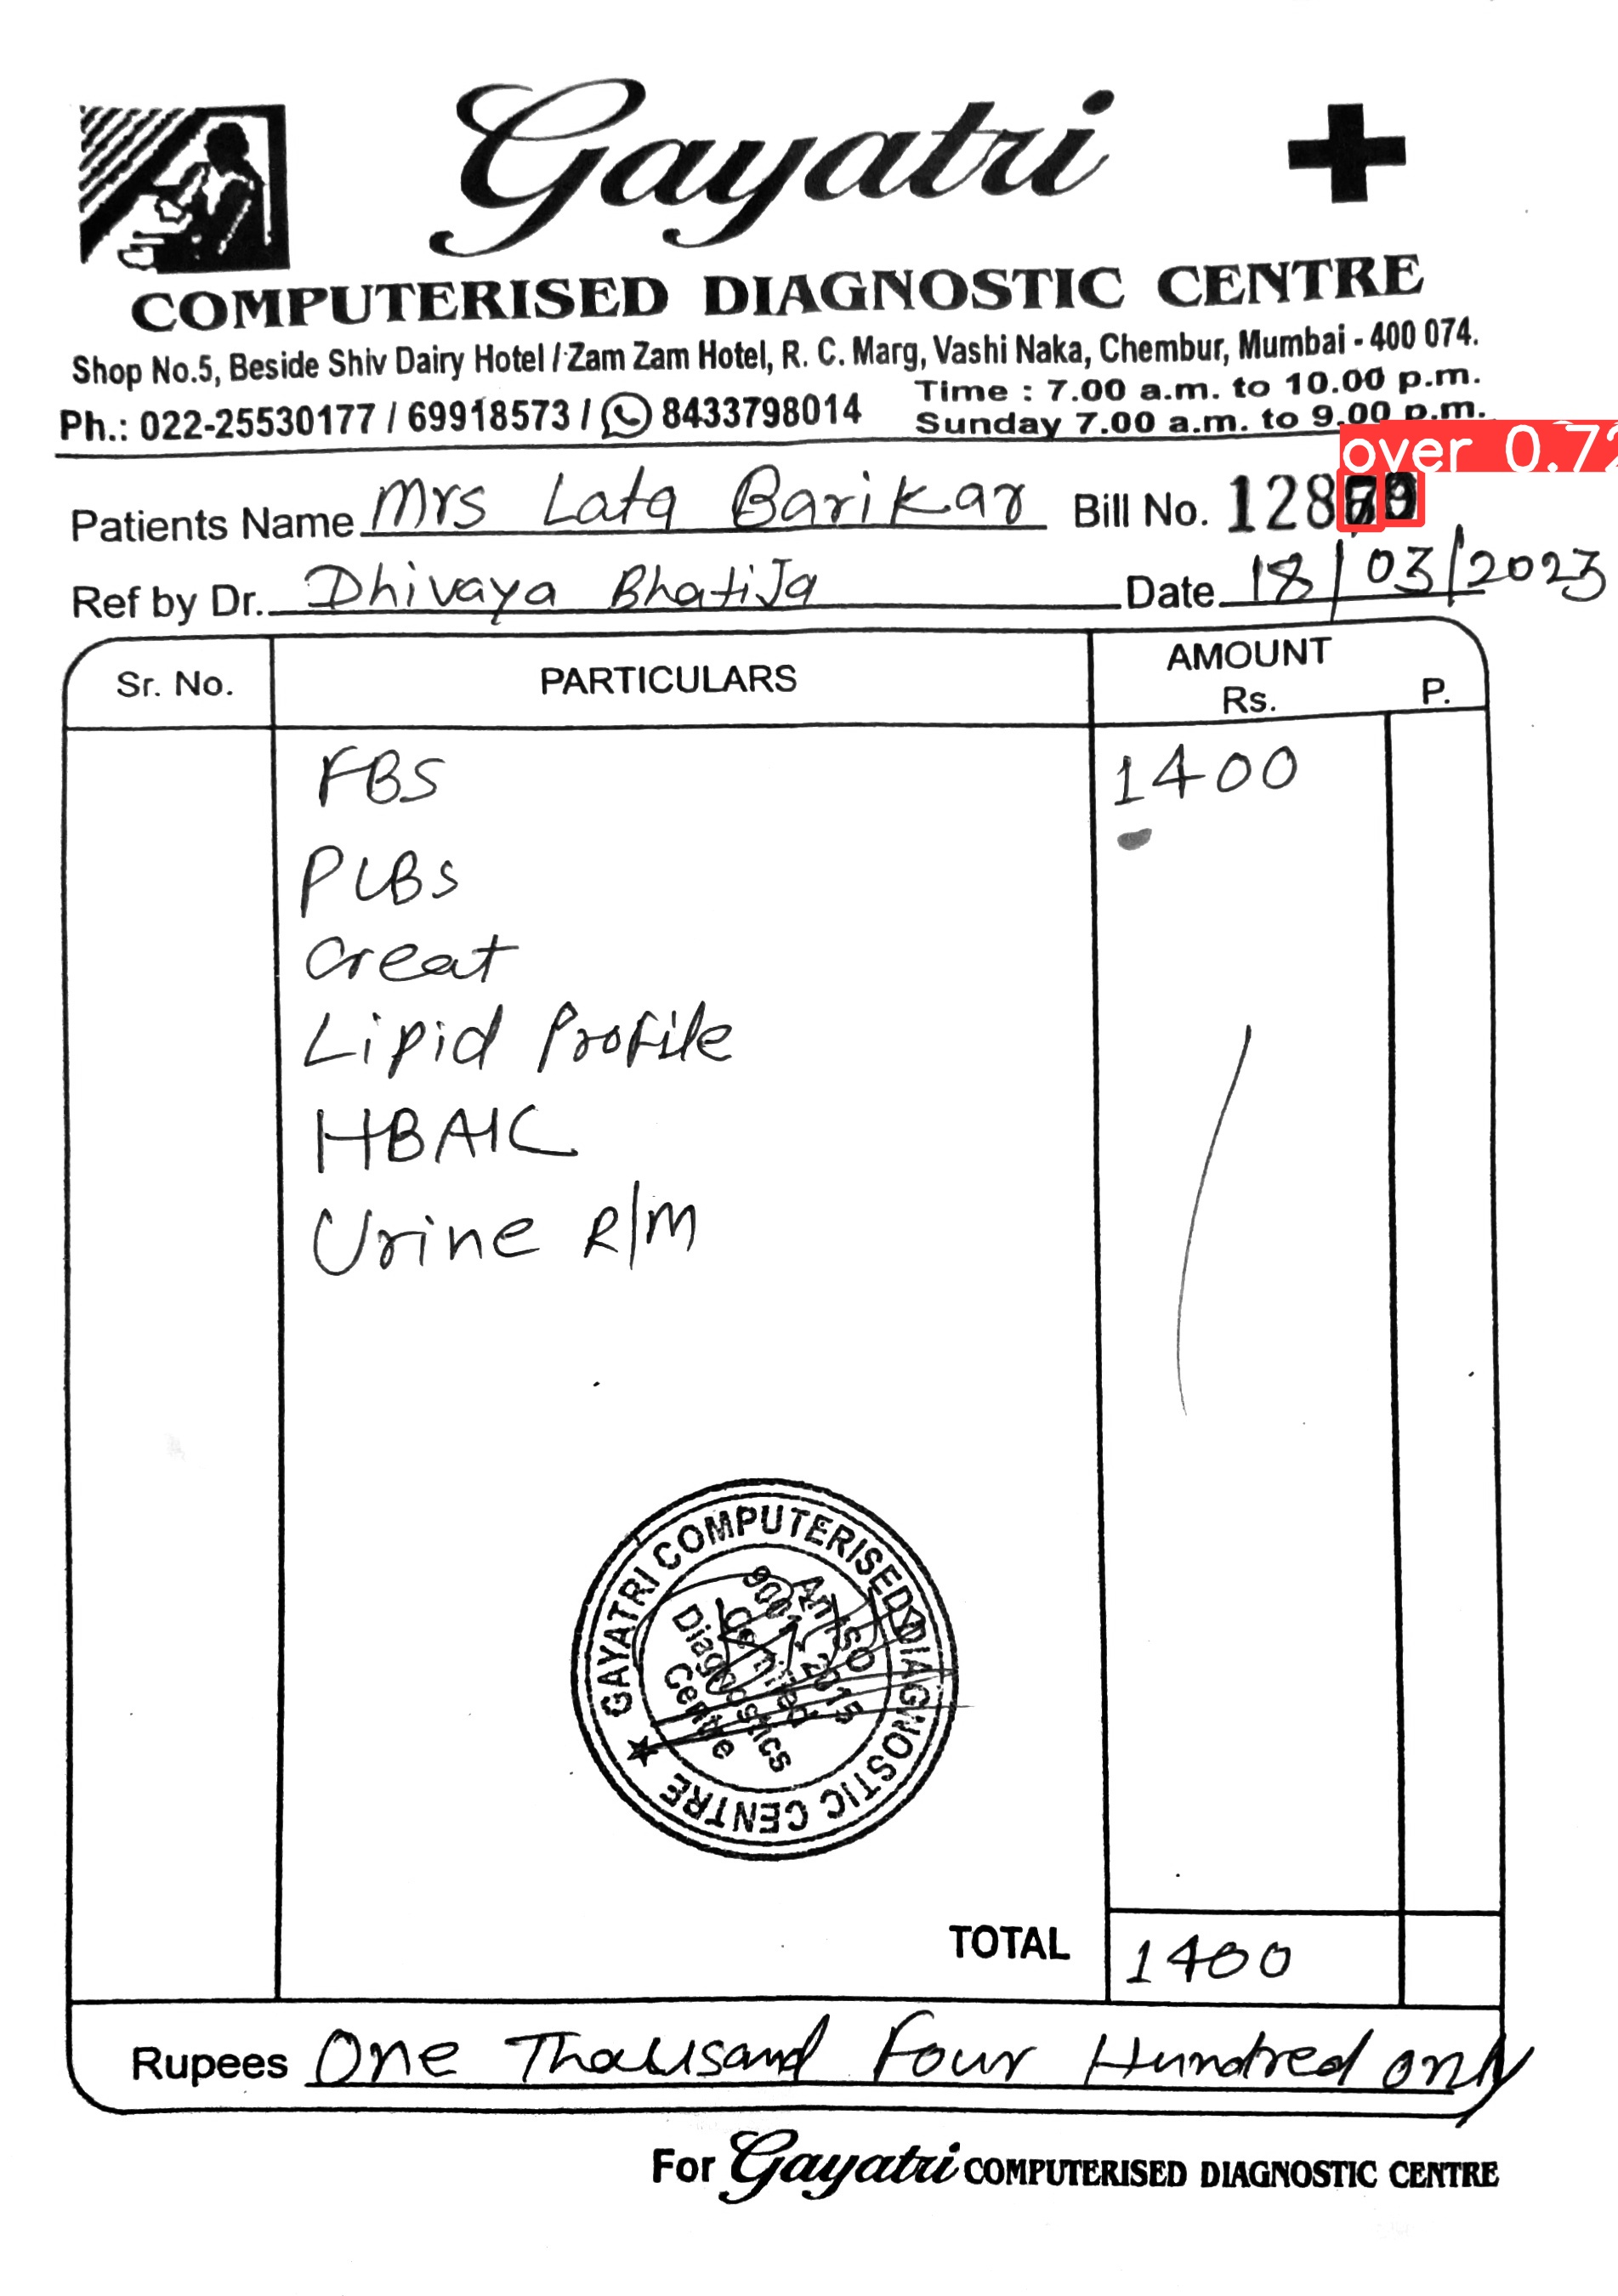 Gayatri
COMPUTERISED DIAGNOSTIC CENTRE
Shop No.5, Beside Shiv Dairy Hotel / Zam Zam Hotel, R. C. Marg, Vashi Naka, Chembur, Mumbai - 400 074.
Time : 7.00 a.m. to 10.00 p.m.
Ph.: 022-25530177 / 69918573 / 8433798014 Sunday 7.00 a.m. to 9.00 p.m.
over 0.72
Patients Name Mrs Lata Barikar Bill No.
Ref by Dr. Dhivaya BhatiJa Date 18/03/2023
Sr. No. PARTICULARS AMOUNT Rs. P.
FBS 1400
PLBS
Creat
Lipid Profile
HBA1C
Urine R/M
GAYATRI COMPUTERISED DIAGNOSTIC CENTRE
An ISO
9001:2015
Certified
Diagnostics
Centre
TOTAL 1400
Rupees One Thousand Four Hundred only
For Gayatri COMPUTERISED DIAGNOSTIC CENTRE